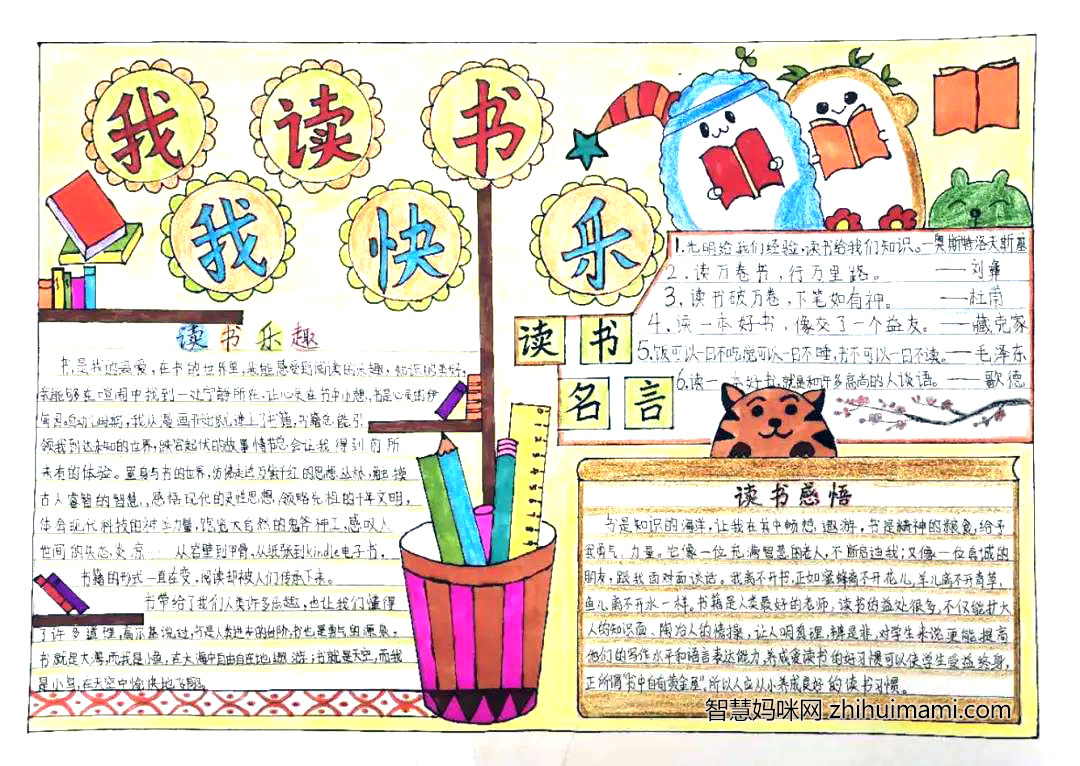 我读书
我快乐
读书乐趣
书是我的最爱，在书的世界里，我能感受到阅读的乐趣，知识的美好，
我能够在喧闹中找到一处宁静所在，让心灵在书中小憩，书是心灵的伊
甸园。自幼儿时期，我从漫画开始就读上了书籍，书籍总能引
领我到达未知的世界，跌宕起伏的故事情节总会让我得到前所
未有的体验。置身与书的世界，仿佛走过万紫千红的思想丛林，触摸
古人睿智的智慧，感悟现代的灵性思想，领略先祖的千年文明，
体会现代科技的神奇力量，饱览大自然的鬼斧神工，感叹人
世间的从岩壁到甲骨，从纸张到kindle电子书，
书籍的形式一直在变，阅读却被人们传承下来。
书带给了我们人类许多乐趣，也让我们懂得
了许多道理，高尔基说过，书是人类进步的台阶，书也是勇气的源泉，
书就是大海，而我是小鱼，在大海中自由自在地遨游；书就是天空，而我
是小鸟，在天空中愉快地飞翔。
读书
名言
1.光明给我们经验，读书给我们知识。—奥斯特洛夫斯基
2.读万卷书，行万里路。——刘彝
3.读书破万卷，下笔如有神。——杜甫
4.读一本好书，像交了一个益友。——臧克家
5.饭可以一日不吃，觉可以一日不睡，书不可以一日不读。—毛泽东
6.读一本好书，就是和许多高尚的人谈话。——歌德
读书感悟
书是知识的海洋，让我在其中畅想、遨游，书是精神的粮食，给予
我勇气、力量。它像一位充满智慧的老人，不断启迪我；又像一位真诚的
朋友，跟我面对面谈话。我离不开书，正如蜜蜂离不开花儿，羊儿离不开青草，
鱼儿离不开水一样。书籍是人类最好的老师，读书的益处很多，不仅能扩大
人的知识面、陶冶人的情操，让人明真理，辨是非，对学生来说更能提高
他们的写作水平和语言表达能力，养成爱读书的好习惯可以使学生受益终身，
正所谓“书中自有黄金屋”，所以人应从小养成良好的读书习惯。
智慧妈咪网 zhihuimami.com